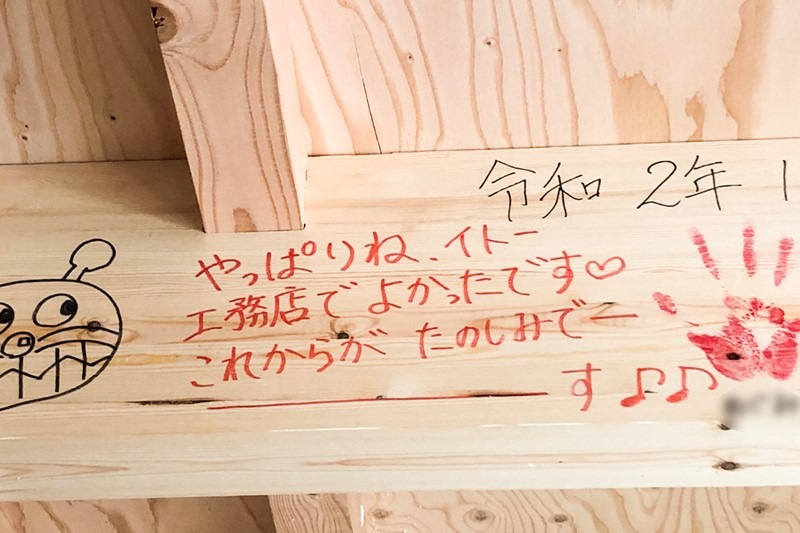 令和 2年 1
やっぱりね、イトー
工務店でよかったです♡
これからが たのしみでー
す♪♪